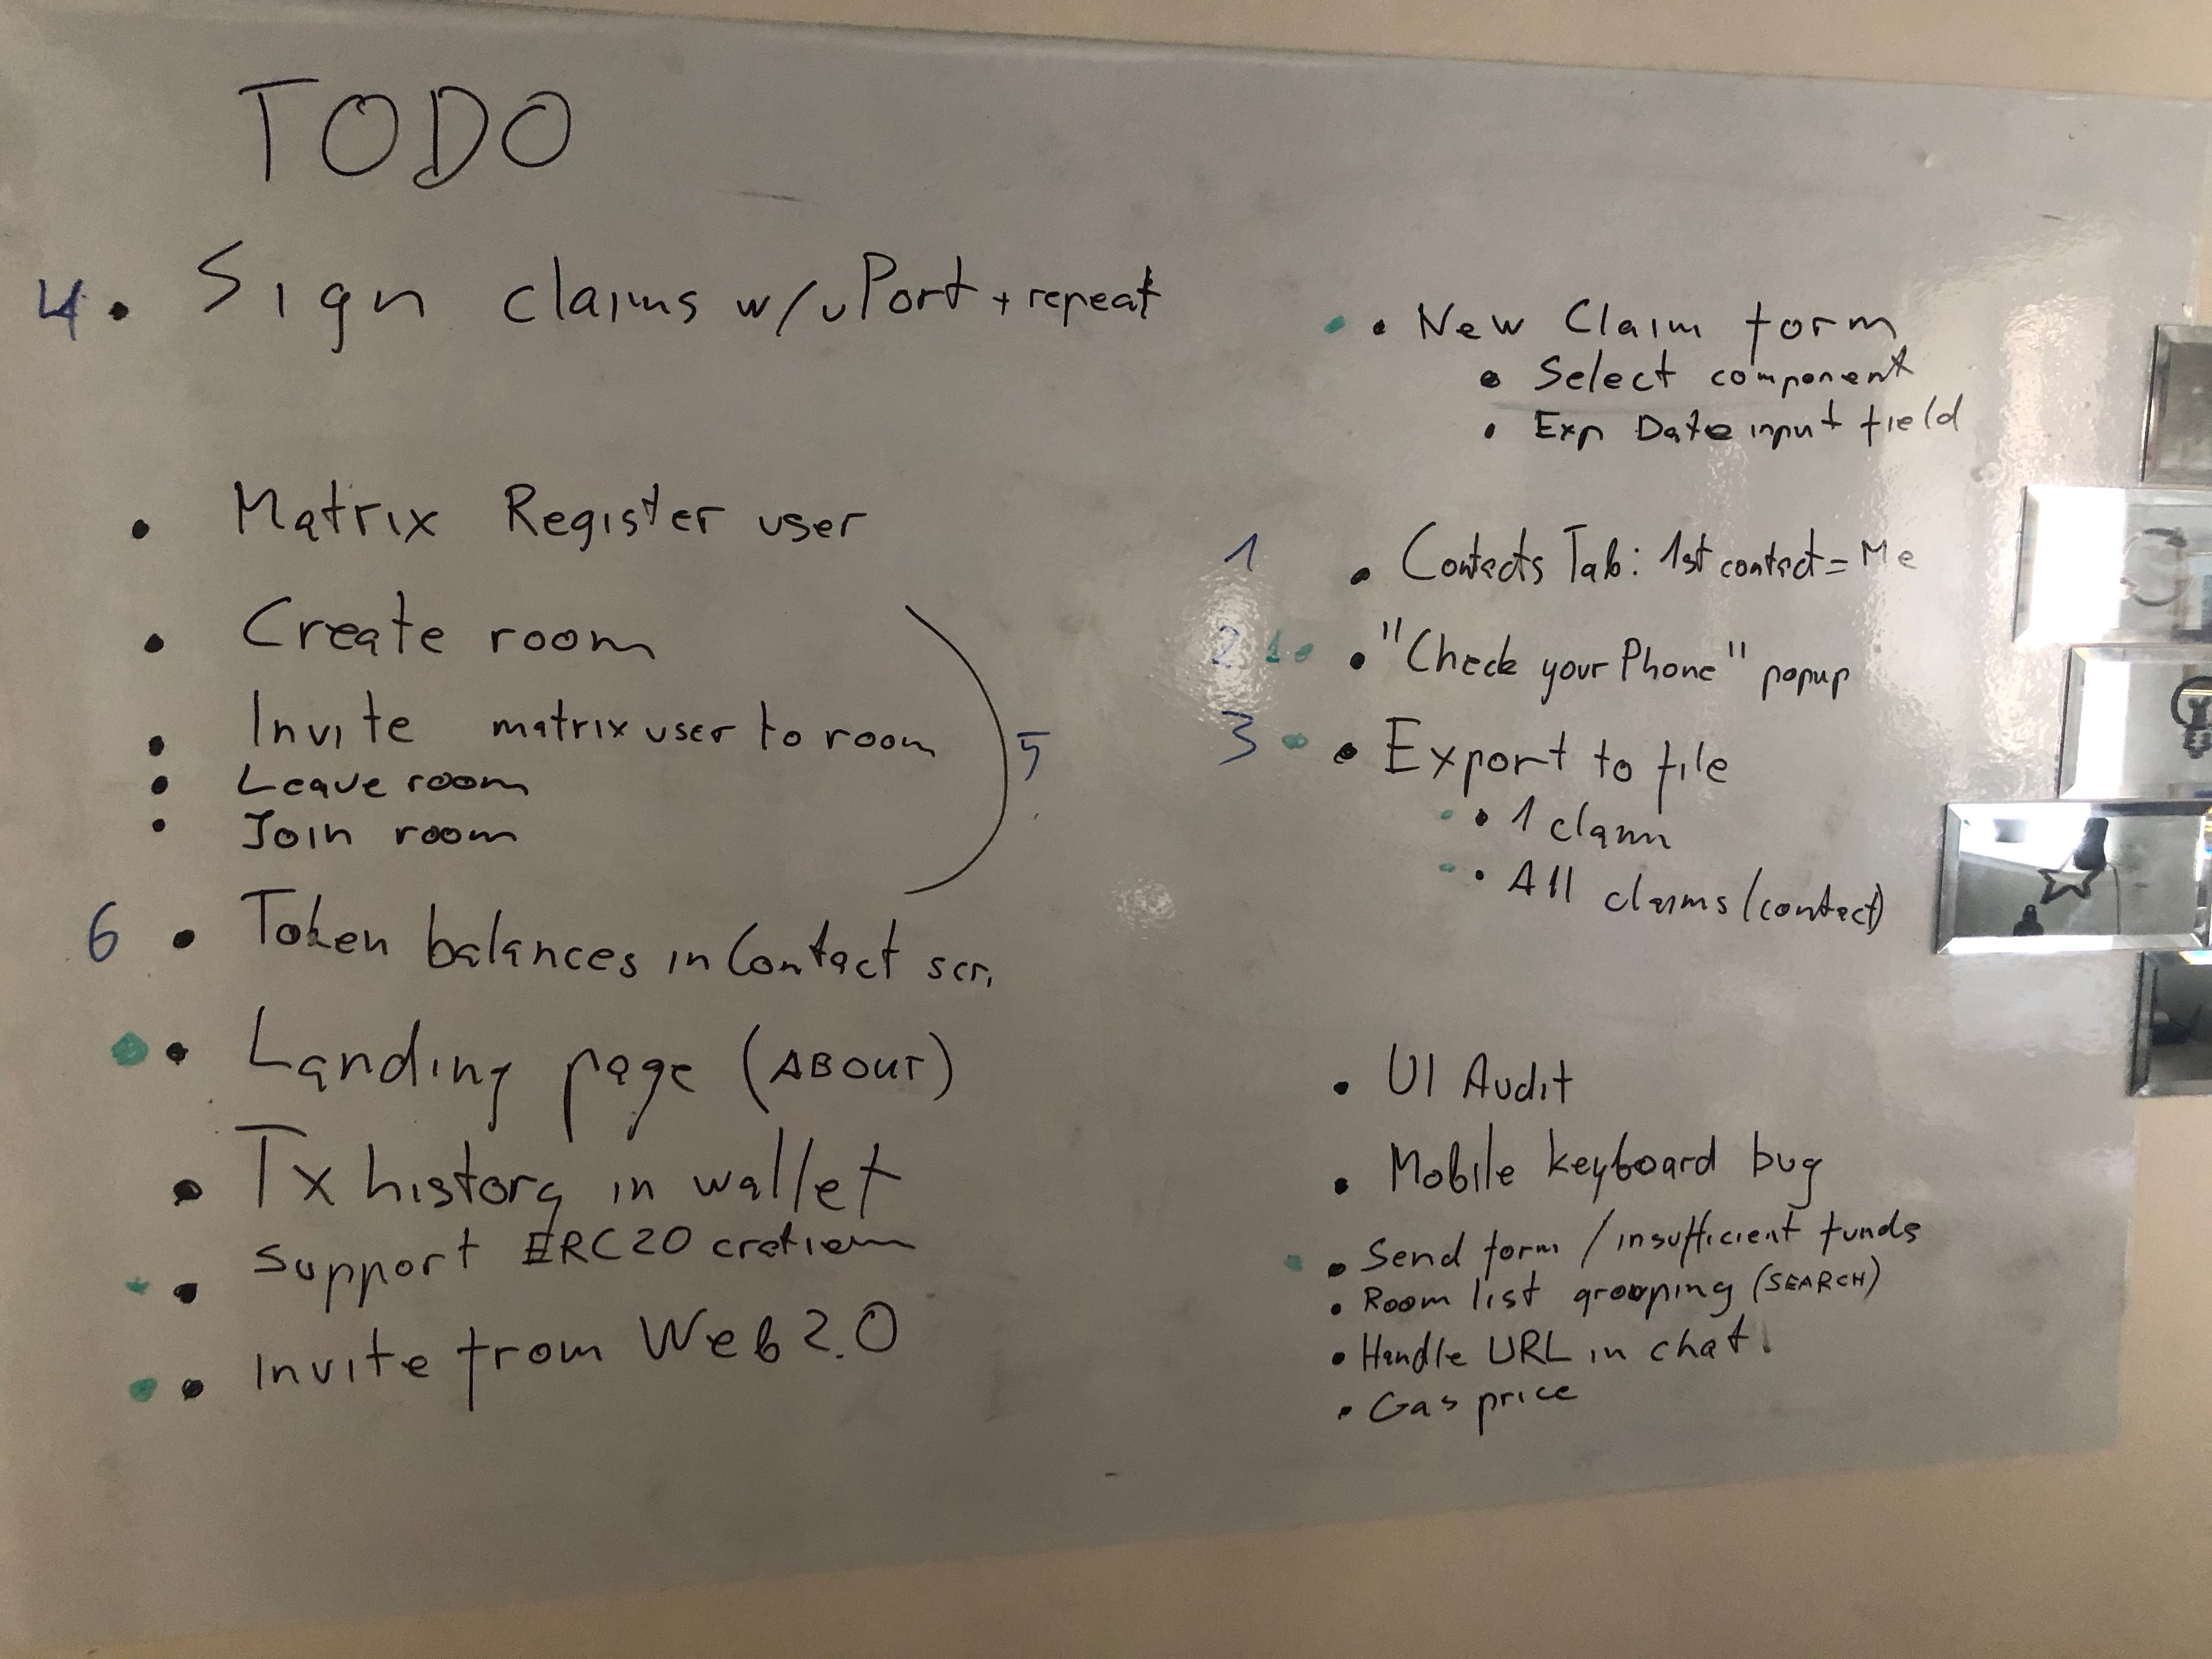 TODO
4. • Sign claims w/uPort + repeat
• Matrix Register user
• Create room
• Invite matrix user to room
5
• Leave room
• Join room
6 • Token balances in Contact scr.
• Landing page (ABOUT)
• Tx history in wallet
• Support ERC20
• Invite from Web 2.0
• New Claim form
• Select component
• Exp Date input field
1 • Contacts Tab: 1st contact = Me
2 • "Check your Phone" popup
3 • Export to file
• 1 claim
• All claims (contact)
• UI Audit
• Mobile keyboard bug
• Send form / insufficient funds
• Room list grooping (SEARCH)
• Handle URL in chat.
• Gas price